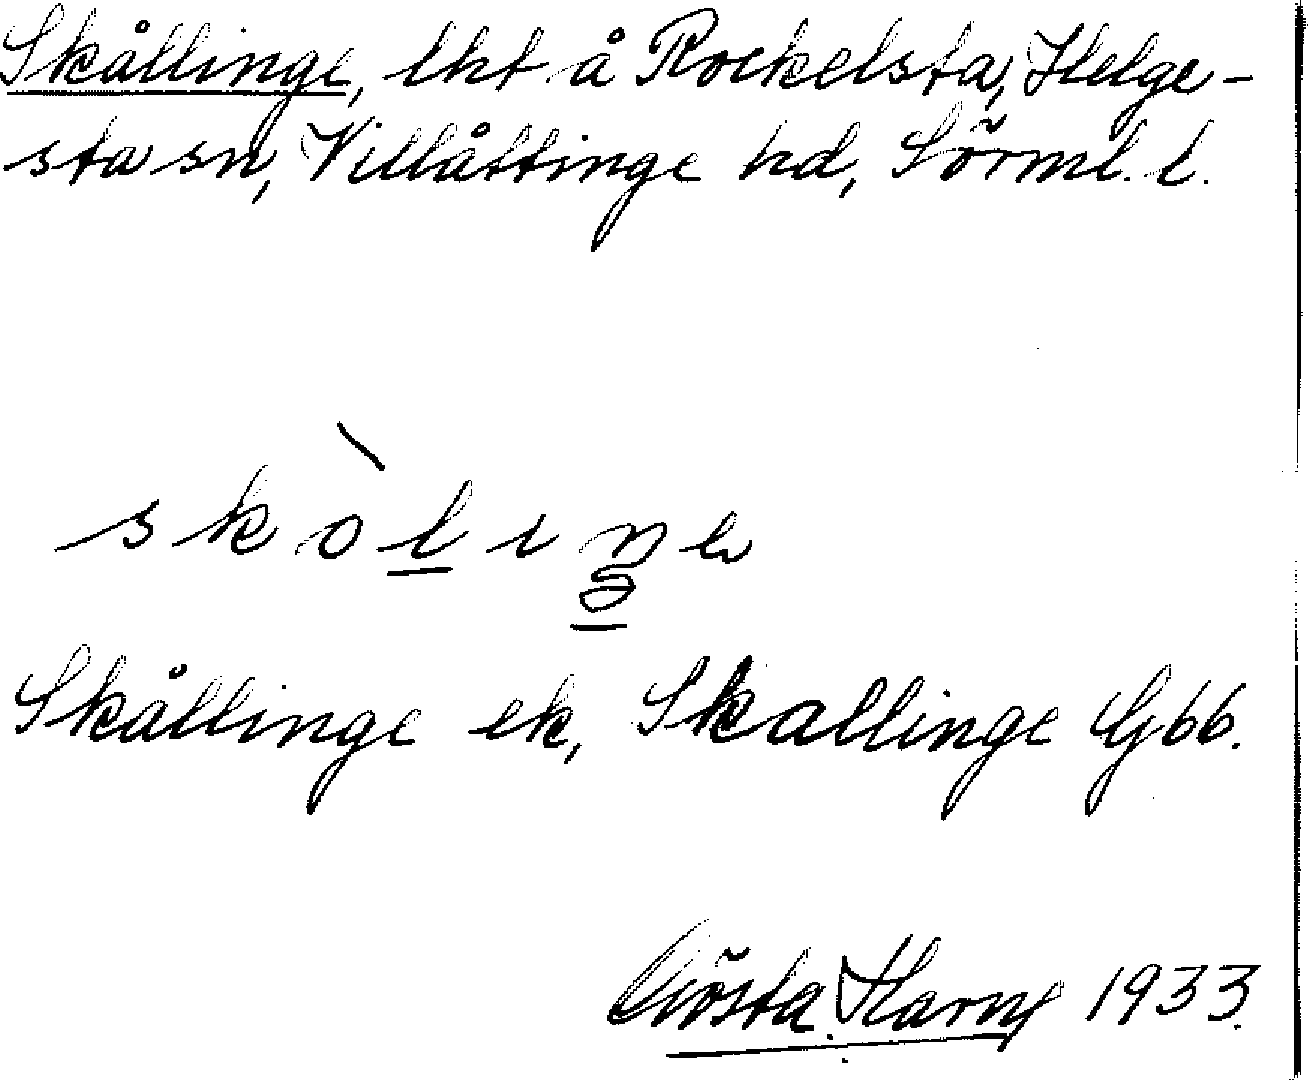 Skållinge, lht å Rockelsta, Helge-
sta sn, Villåttinge hd, Sörml. l.
Skållinge ek, Skallinge Gbb.
Gösta 1933.